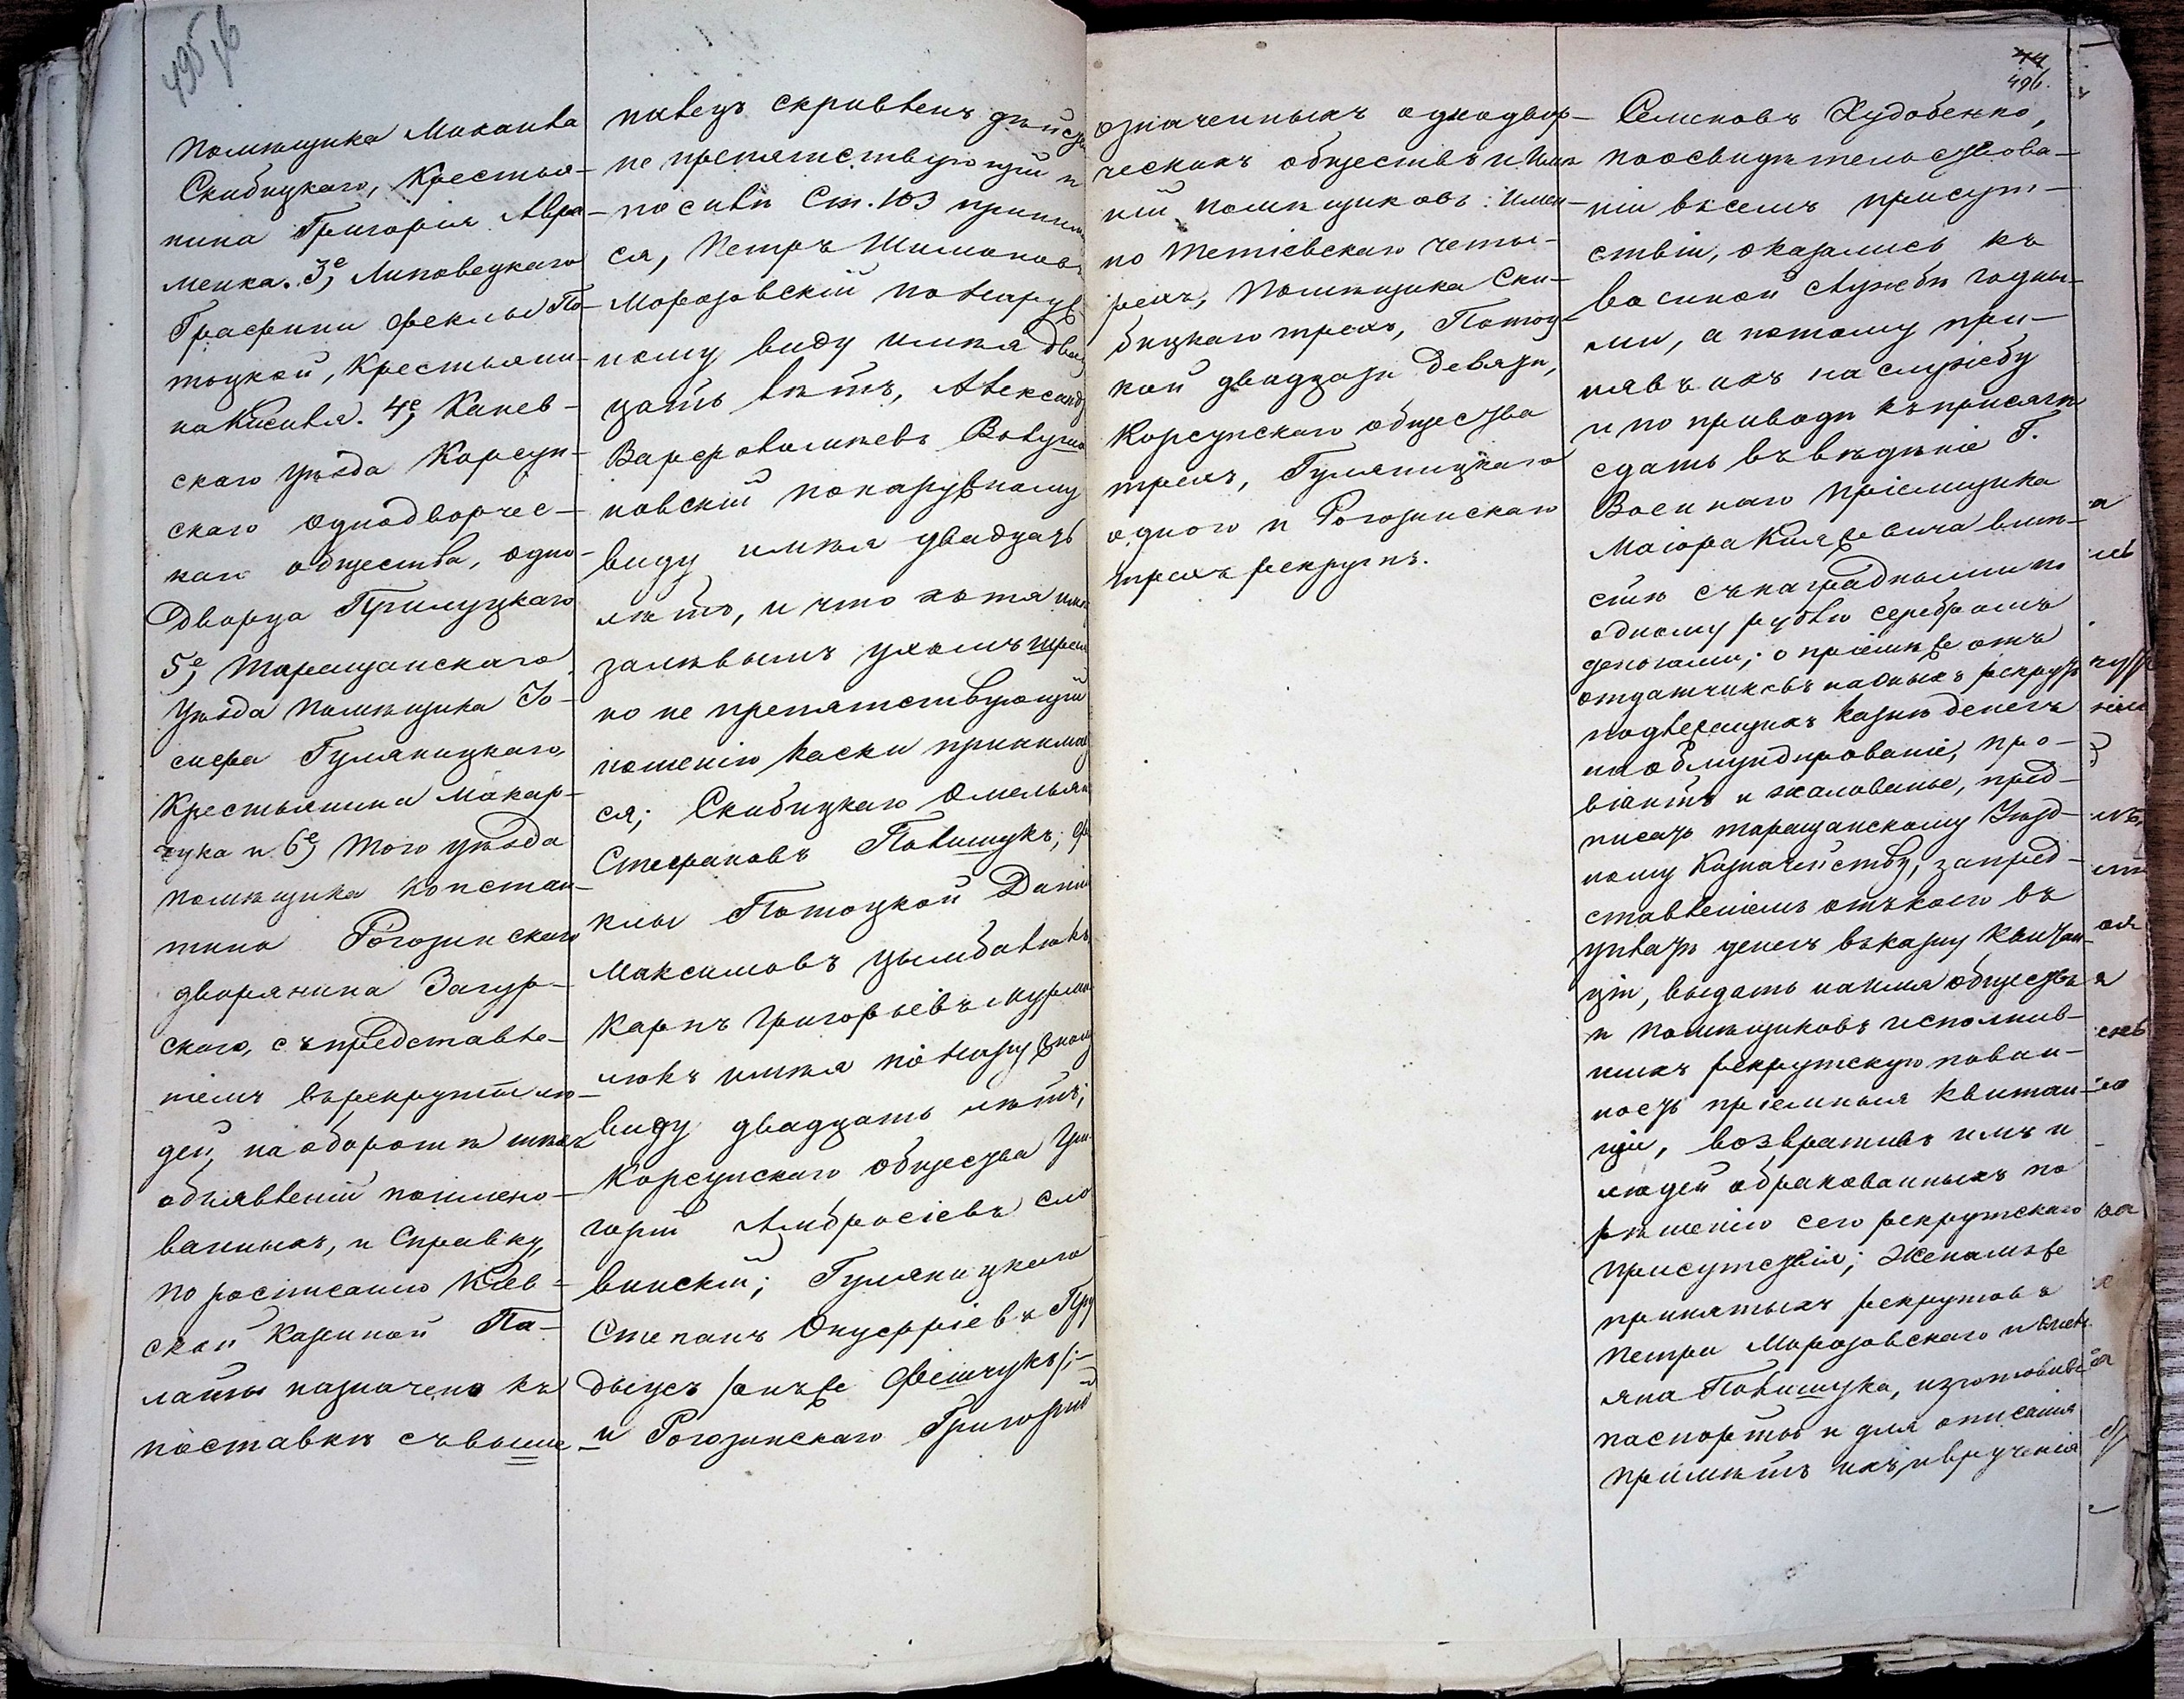 495 об
Помѣщика Михаила
Скибицкаго, Крестья-
нина Григорія Авра-
менка. 3е, Липовецкаго
Графини Феклы По-
тоцкой, Крестьяни-
на Киселя. 4е, Канев-
скаго уѣзда Корсун-
скаго однодворчес-
каго общества, одно-
дворца Прилуцкаго
5е, Таращанскаго
уѣзда помѣщика Іо-
сифа Гуляницкаго,
Крестьянина Макар-
чука и 6е) того уѣзда
помѣщика Констан-
тина Рогозинскаго
дворянина Загур-
скаго, съ представле-
ніемъ въ рекруты лю-
дей, на оборотѣ тѣхъ
объявленій поимено-
ванныхъ, и Справку,
по росписанію Кіев-
ской Казенной Па-
латы назначено къ
поставкѣ съ выше
палецъ скривленъ дѣйств
не препятствующій и
по силѣ Ст. 103 приним
ся, Петръ Шимановъ
Морозовскій по наруж
ному виду имѣя двад
цать лѣтъ, Александ
Варфоломѣевъ
новскій по наружному
виду имѣя двадцать
лѣтъ, и что хотя имѣ
за лѣвымъ ухомъ
но не препятствующій
ношенію каски принима
ся; Скибицкаго Омельян
Стефановъ Полишукъ; Фе
клы Потоцкой Дани
Максимовъ Цымбалюкъ
Карпъ Григорьевъ
люкъ имѣя по наружном
виду двадцать лѣтъ;
Корсунскаго общества Гри
горій Амбросіевъ Сло
винскій; Гуляницкаго
Степанъ Онуфріевъ Пру
дыусъ /онъ же Фещукъ/;
и Рогозинскаго Григорій
означенныхъ однодвор-
ческихъ обществъ и Имѣ
ній помѣщиковъ: имен-
но Тетіевскаго четы-
рехъ, Помѣщика Ски-
бицкаго трехъ, Потоц-
кой двадцати девяти,
Корсунскаго общества
трехъ, Гуляницкаго
одного и Рогозинскаго
трехъ рекрутъ.
496.
Семеновъ Худобенко,
по освидѣтельствова-
ніи въ семъ присут-
ствіи, оказались къ
военной службѣ годны-
ми, а потому при-
нявъ ихъ на службу
и по приводѣ къ присягѣ
сдать въ вѣдѣніе Г.
Военнаго Пріемщика
Маіора вмѣ-
стѣ съ наградными по
одному рублю серебромъ
деньгами; о пріемѣ же отъ
отдатчиковъ на оныхъ рекрутъ
подлежащихъ казнѣ денегъ
на обмундированіе, про-
віантъ и жалованье, пред-
писать Таращанскому Уѣзд-
ному Казначейству, за пред-
ставленіемъ отъ коего въ
уплатѣ денегъ въ казну квитан-
ціи, выдать на имя общества
и помѣщиковъ исполнив-
шихъ рекрутскую повин-
ность пріемныя квитан-
ціи, возвративъ имъ и
людей обракованныхъ по
рѣшенію сего рекрутскаго
присутствія; Женамъ же
принятыхъ рекрутовъ
Петра Морозовскаго и Омель
яна Полишука, изготовивъ
паспорты и для описанія
примѣтъ ихъ, и врученія